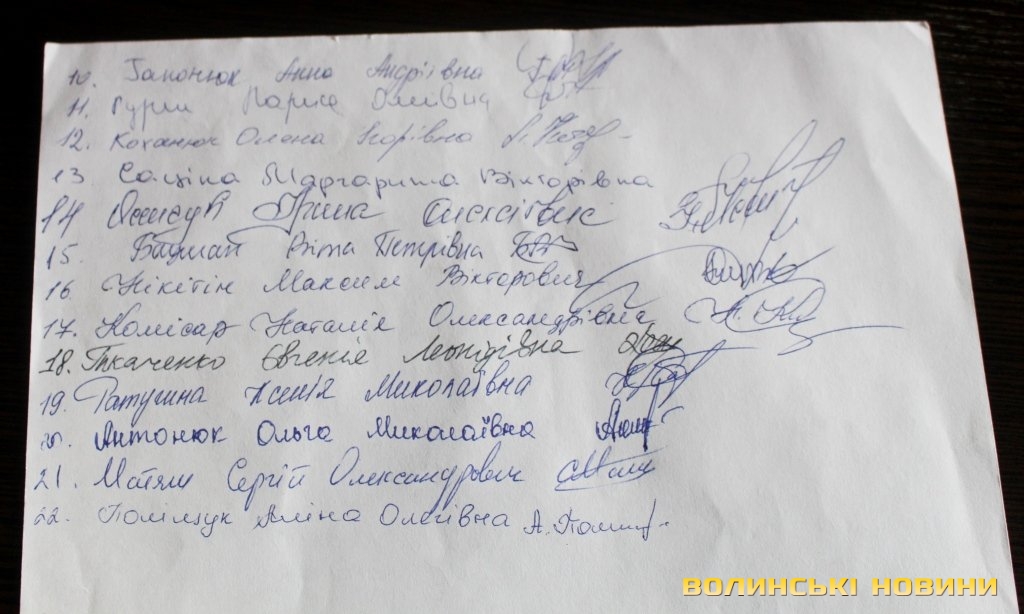 10. Гапонюк Анна Андріївна
11. Лариса
12. Коханюк Олена Ігорівна
13 Саціна Маргарита Вікторівна
14 Ірина Олексіївна
15. Віта Петрівна
16. Нікітін Максим Вікторович
17. Комісар Наталія Олександрівна
18. Ткаченко Євгенія Леонідівна
19. Ксенія Миколаївна
20. Антонюк Ольга Миколаївна
21. Матяш Сергій Олександрович
22. Поліщук Аліна Олегівна
ВОЛИНСЬКІ НОВИНИ